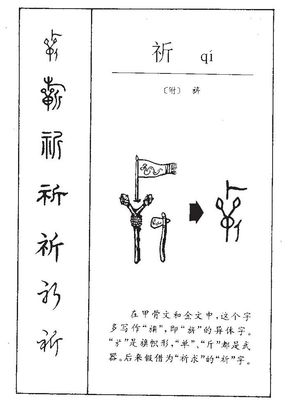 祈 qí
〔附〕
祈
祈
祈
祈
祈
在甲骨文和金文中,这个字
多写作“ ”,即“旂”的异体字。
“㫃”是旗帜形,“单”、“斤”都是武
器。后来假借为“祈求”的“祈”字。